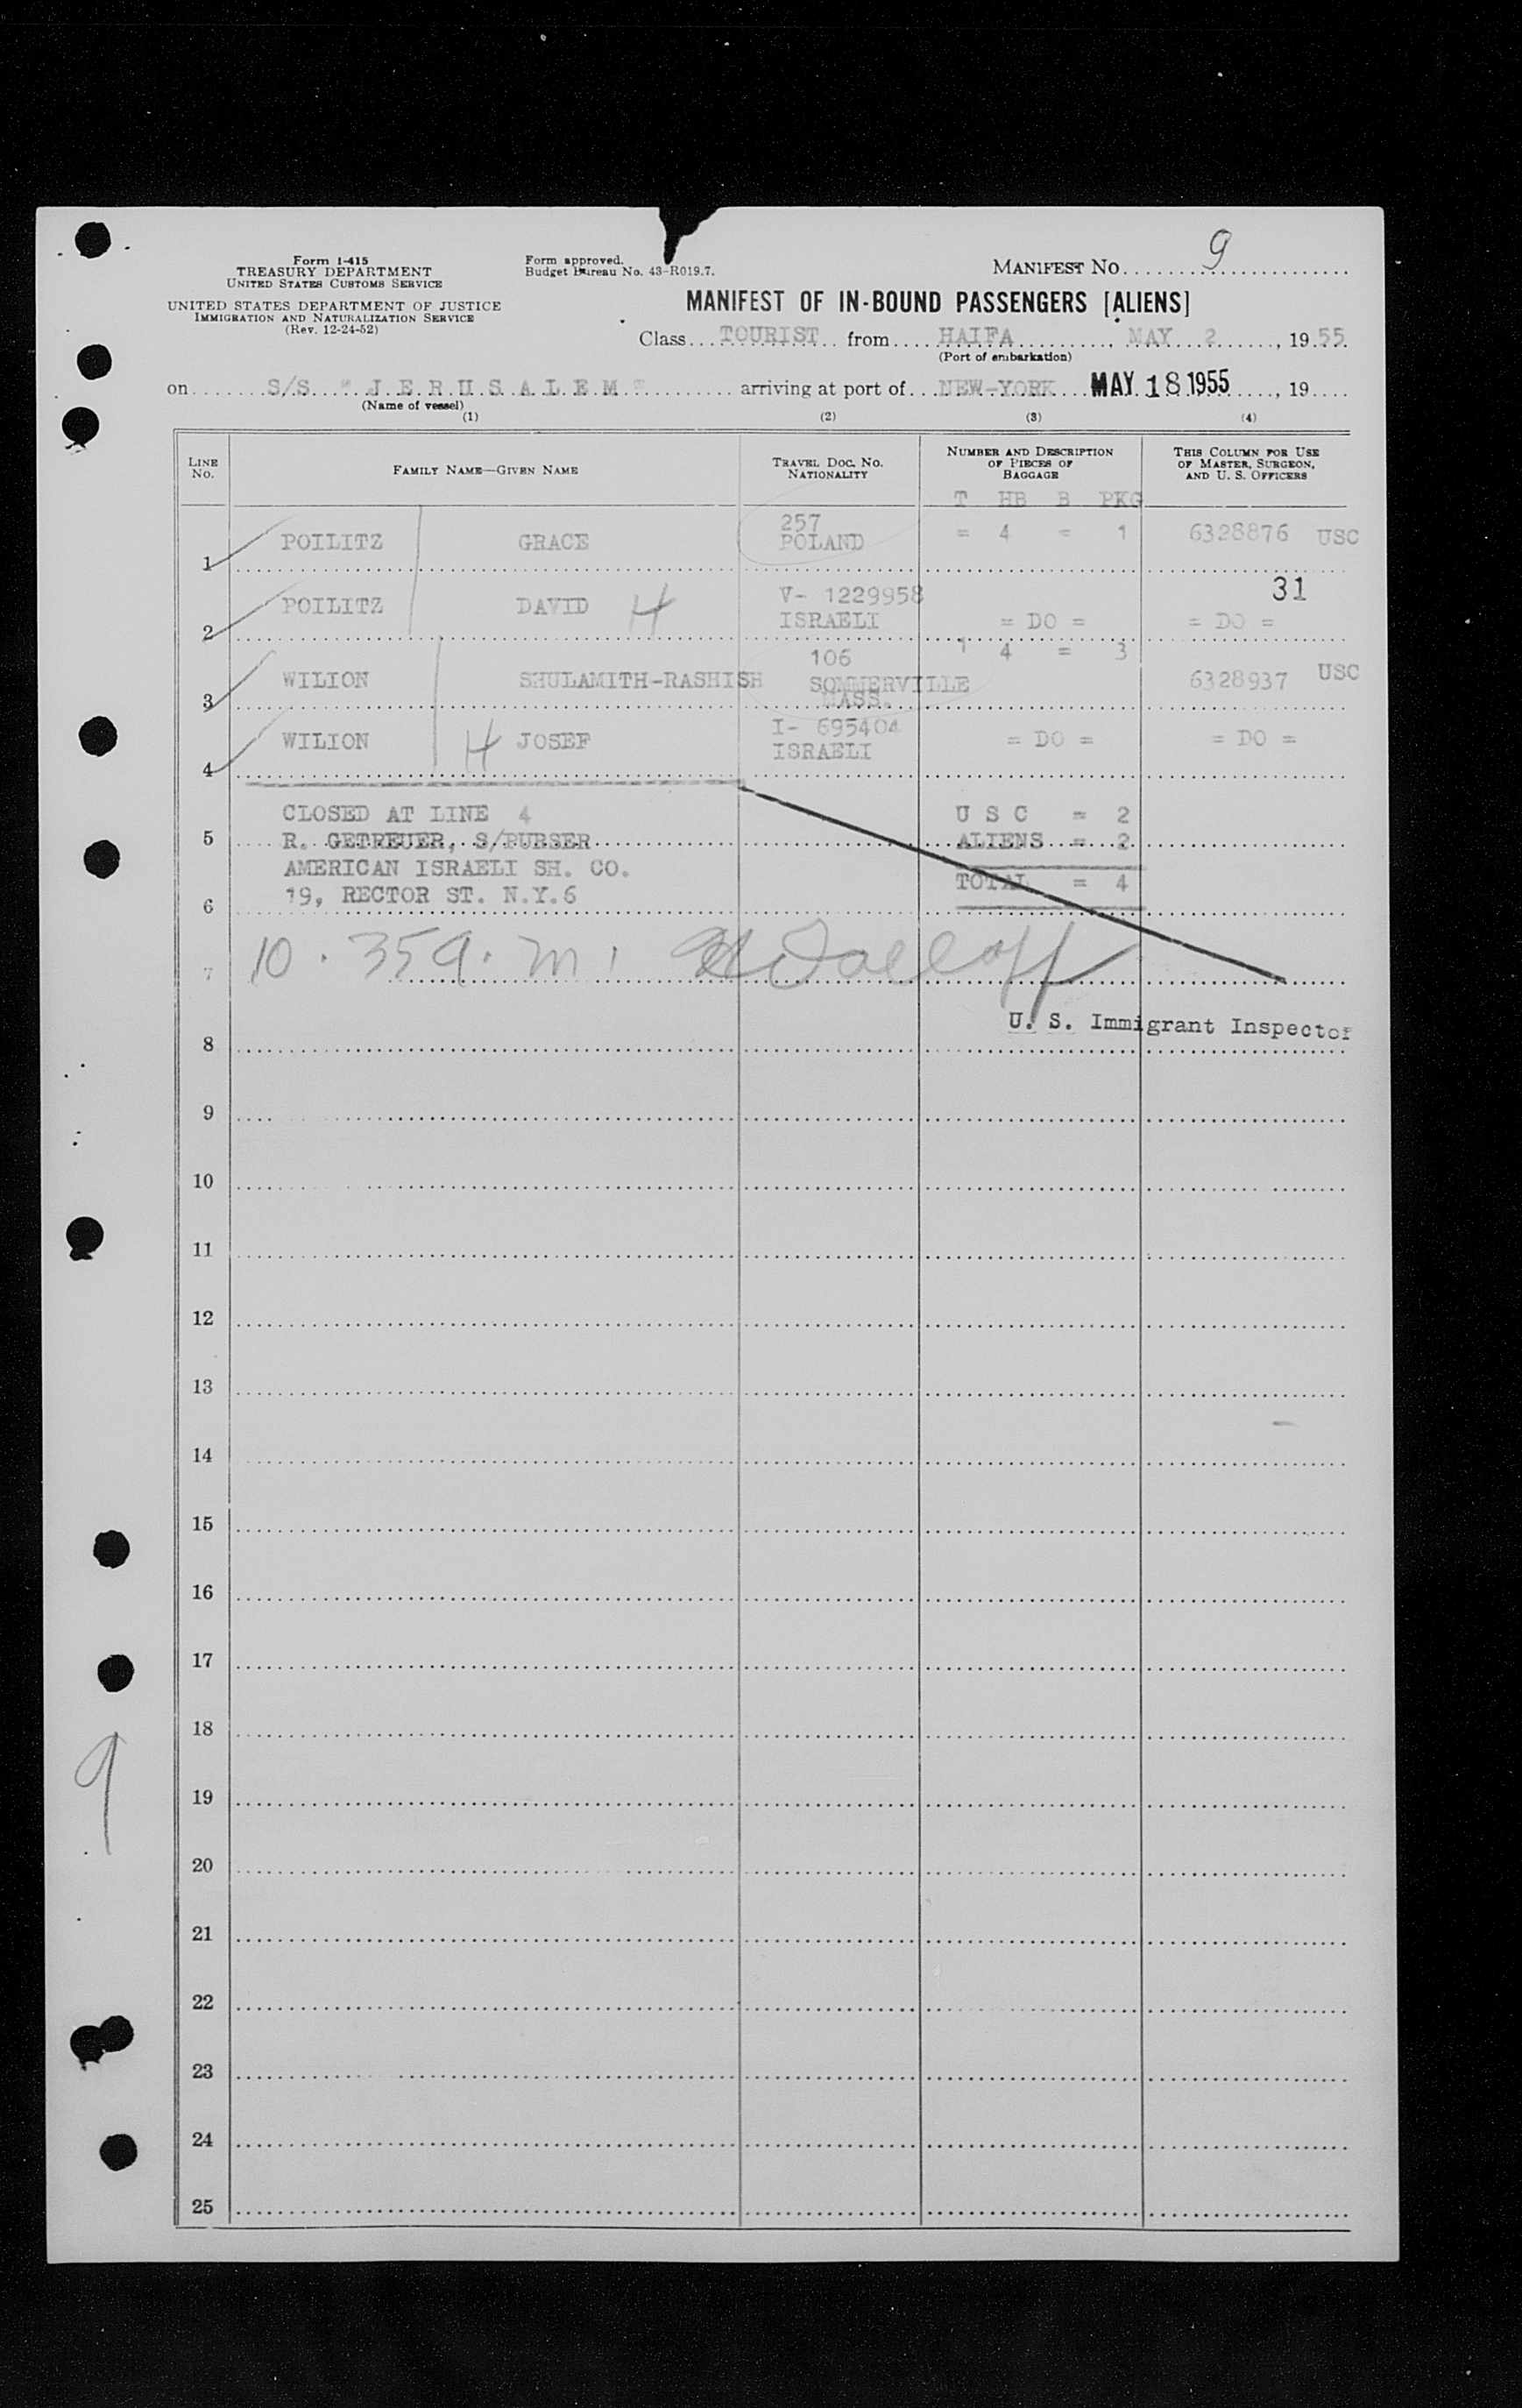 Form I-415
TREASURY DEPARTMENT
UNITED STATES CUSTOMS SERVICE
UNITED STATES DEPARTMENT OF JUSTICE
IMMIGRATION AND NATURALIZATION SERVICE
(Rev. 12-24-52)
Form approved.
Budget Bureau No. 43-R019.7.
MANIFEST No. 9
MANIFEST OF IN-BOUND PASSENGERS [ALIENS]
Class TOURIST from HAIFA, MAY 2, 1955
(Port of embarkation)
on S/S " J.E.R.U.S.A.L.E.M " arriving at port of NEW-YORK MAY 18 1955, 19
(Name of vessel)
(1) (2) (3) (4)
LINE No. FAMILY NAME—GIVEN NAME TRAVEL DOC. NO. NATIONALITY NUMBER AND DESCRIPTION OF PIECES OF BAGGAGE THIS COLUMN FOR USE OF MASTER, SURGEON, AND U. S. OFFICERS
T HB B PKG
1 POILITZ GRACE 257 POLAND = 4 = 1 6328876 USC
31
2 POILITZ DAVID H V- 1229958 ISRAELI = DO = = DO =
3 WILION SHULAMITH-RASHISH 106 SOMMERVILLE MASS. 1 4 = 3 6328937 USC
4 WILION H JOSEF I- 695404 ISRAELI = DO = = DO =
CLOSED AT LINE 4 U S C = 2
5 R. GETREUER, S/PURSER ALIENS = 2
AMERICAN ISRAELI SH. CO.
6 19, RECTOR ST. N.Y.6 TOTAL = 4
7 10.35 a.m.
U. S. Immigrant Inspector
8
9
10
11
12
13
14
15
16
17
18
9
19
20
21
22
23
24
25